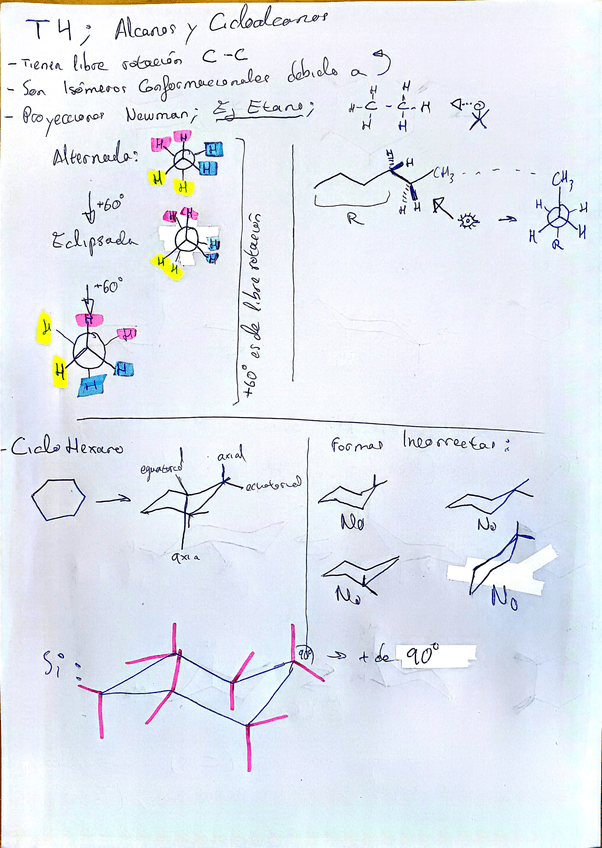 T4; Alcanos y Cicloalcanos
- Tienen libre rotación C-C
- Son Isómeros Conformacionales debido a
- Proyecciones Newman; Ej Etano;
H H
H-C-C-H
H H
Alternada:
H H H
H
H H
+60°
Eclipsada
H H
H
H
H H
+60°
H
H H
H H
H
+60° es de libre rotación
H H
CH3
R
H H
CH3
H H
H H
R
- Ciclo Hexano
ecuatorial
axial
ecuatorial
axia
Formas Incorrectas:
No
No
No
No
Si:
90°
+ de 90°